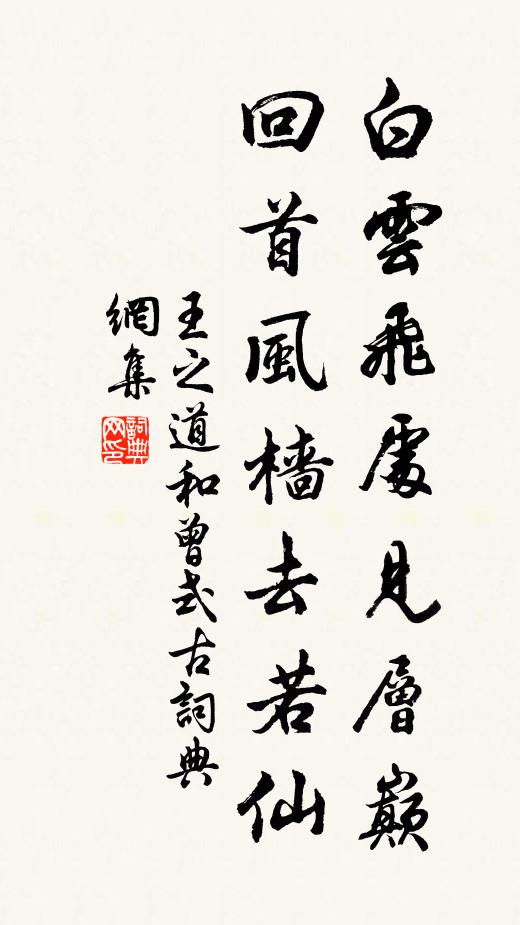 白雲飛處見層巔
回首風檣去若仙
王之道和曾式古詞典
網集
詞典網印